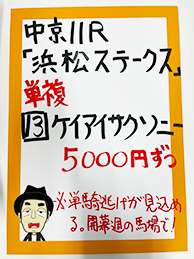 中京11R
「浜松ステークス」
単複
13ケイアイサクソニー
5000円ずつ
※単騎逃げが見込め
る。開幕週の馬場で!